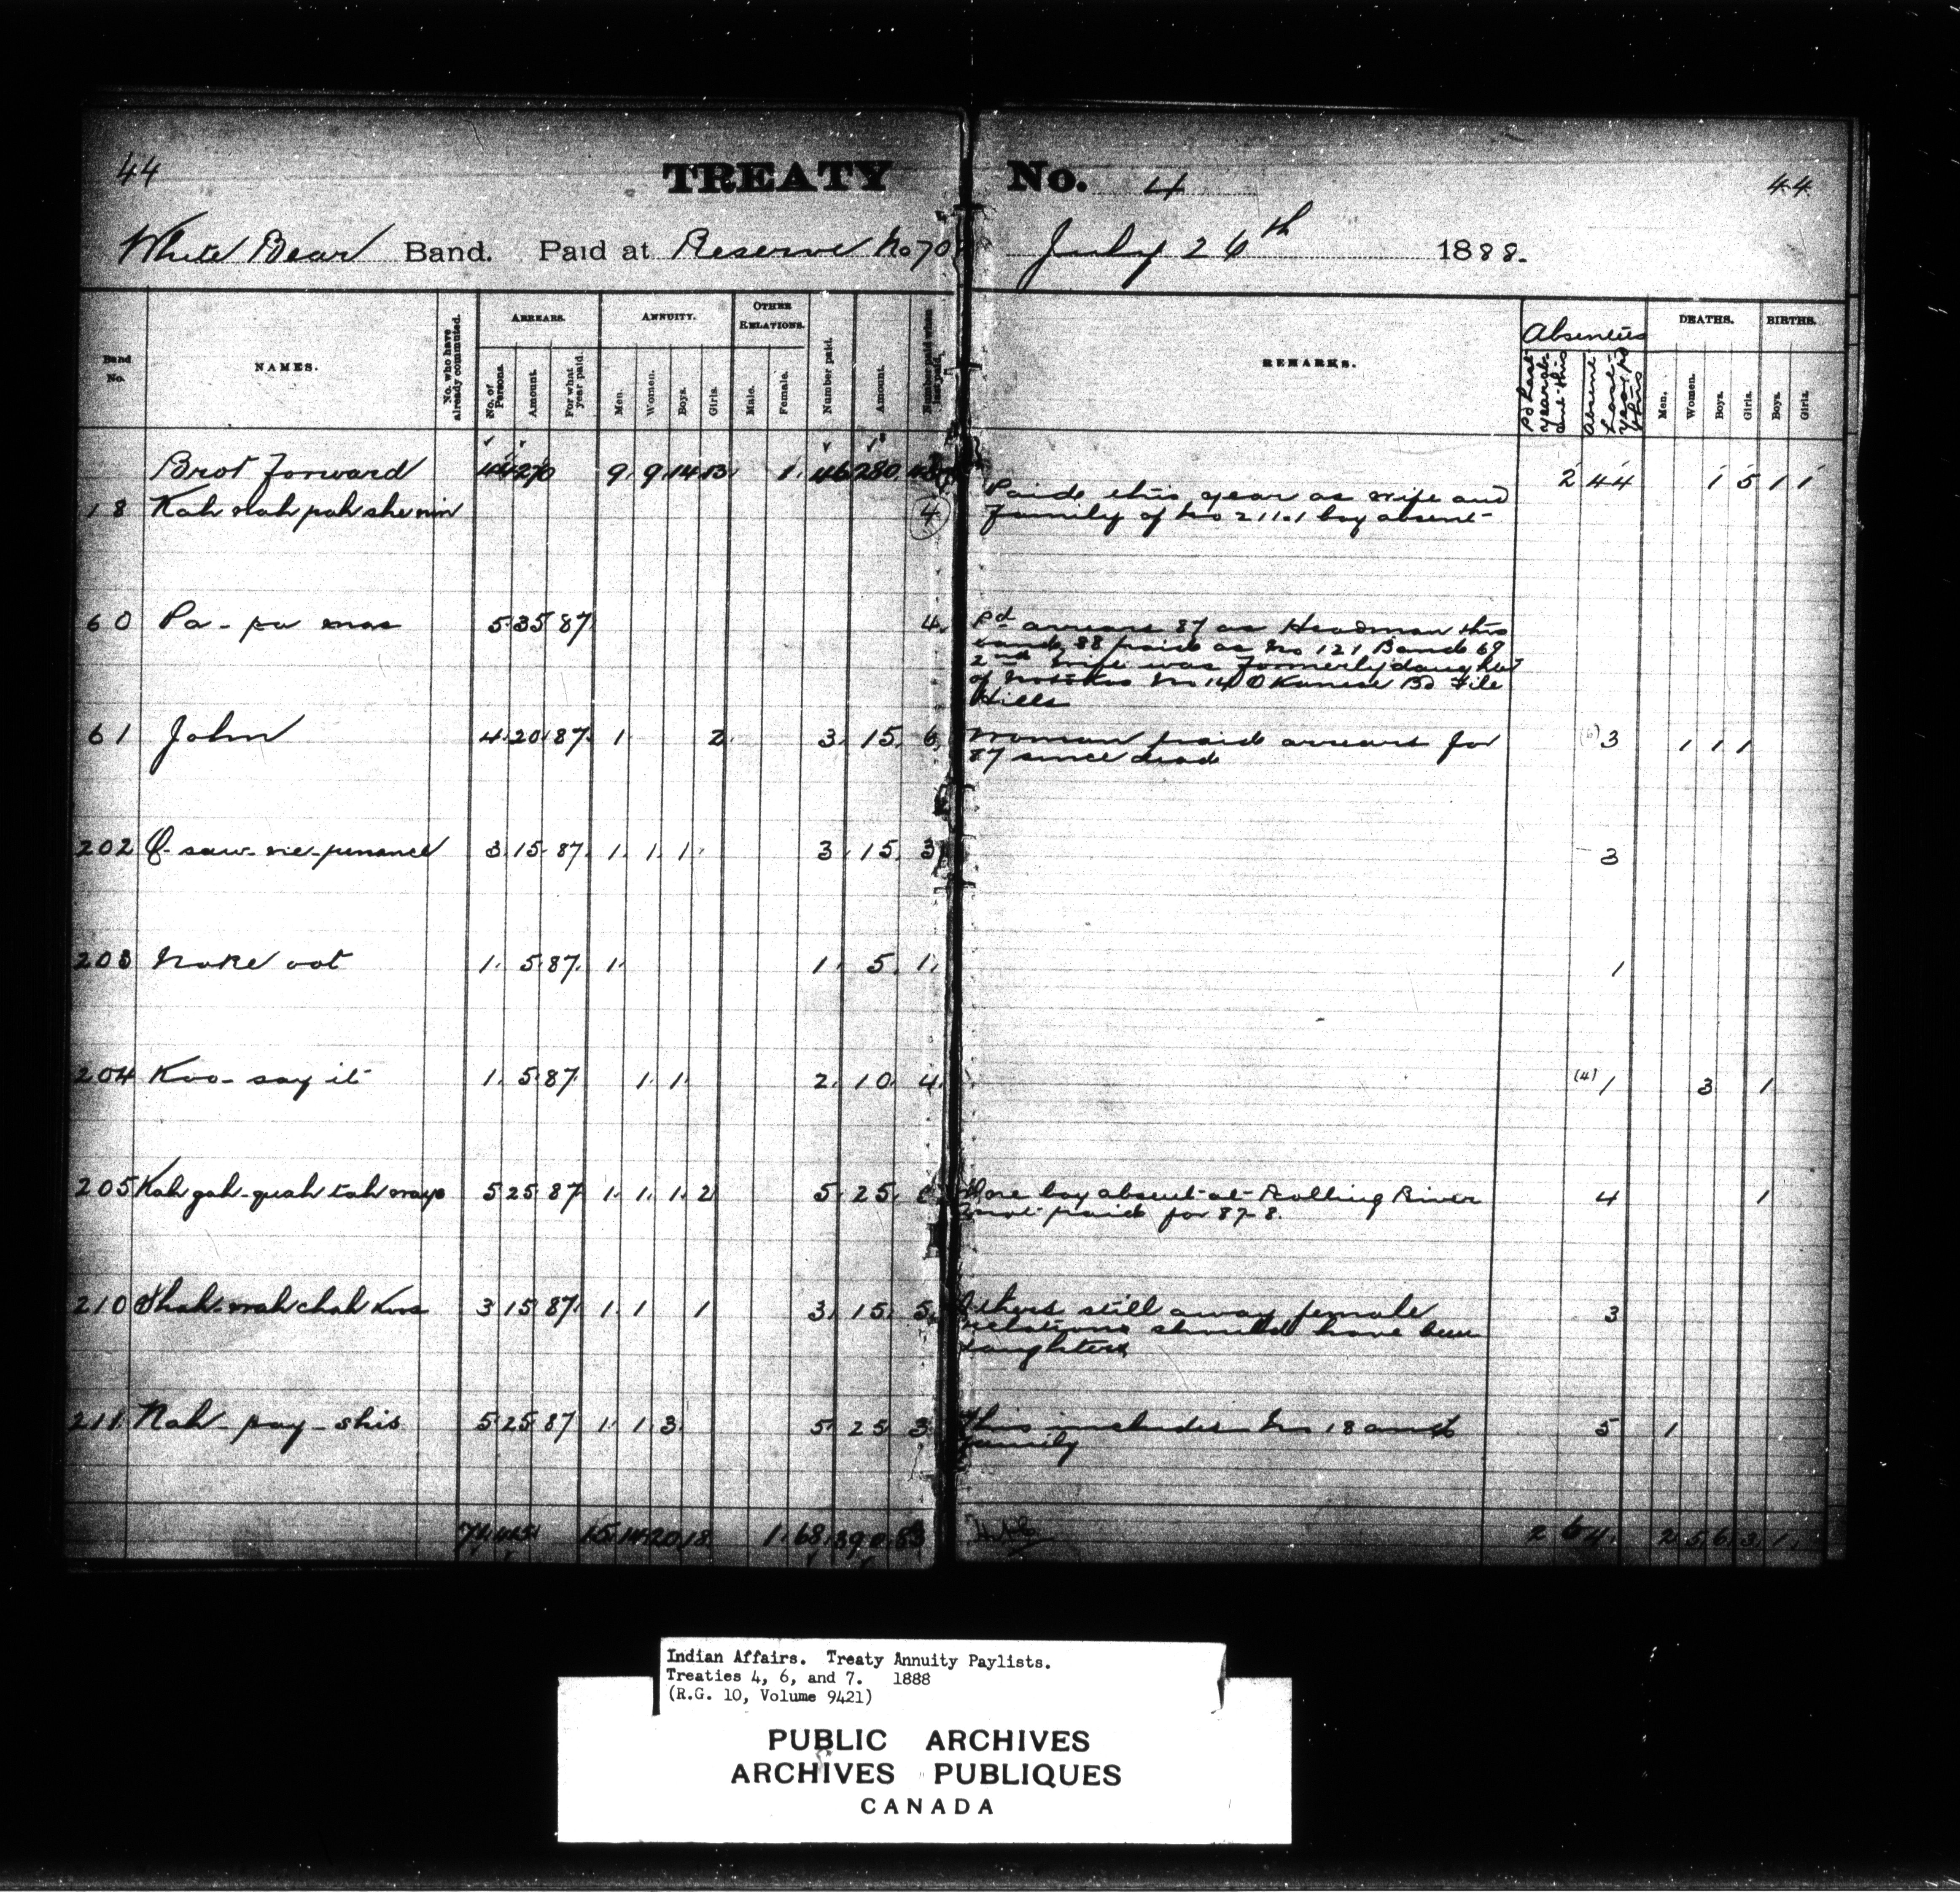 44 TREATY No. 4 44
White Bear Band. Paid at Reserve No 70 July 26th 1888.
Band No. NAMES. No. who have already commuted. ARREARS. ANNUITY. OTHER RELATIONS. Number paid. Amount. Number paid when last paid. REMARKS. Absentees DEATHS. BIRTHS.
No. of Persons. Amount. For what year paid. Men. Women. Boys. Girls. Male. Female. Pd last year absent this Absent last year pd this Men. Women. Boys. Girls. Boys. Girls.
Brot Forward 44 270 9 9 14 13 1 46 280 2 44 1 5 1 1
18 4 Paid this year as wife and
family of No 211. 1 boy absent
60 5 35 87 4 Pd arrears 87 as Headman this
band, 88 paid as No 121 Band 69
2nd wife was formerly daughter
of No 14 Okanese Bd File
Hills
61 John 4 20 87 1 2 3 15 6 Woman paid arrears for (6) 3 1 1 1
87 since dead
202 3 15 87 1 1 1 3 15 3 3
203 1 5 87 1 1 5 1 1
204 Koo-say it 1 5 87 1 1 2 10 4 (4) 1 3 1
205 5 25 87 1 1 1 2 5 25 One boy absent at Rolling River 4 1
not paid for 87-8.
210 3 15 87 1 1 1 3 15 5 Others still away female 3
relations should have been
daughters
211 Nah-pay-shis 5 25 87 1 1 3 5 25 3 This includes No 18 and 5 1
family
15 14 20 18 1 68 390 2 64 2 5 6 3 1
Indian Affairs. Treaty Annuity Paylists.
Treaties 4, 6, and 7. 1888
(R.G. 10, Volume 9421)
PUBLIC ARCHIVES
ARCHIVES PUBLIQUES
CANADA